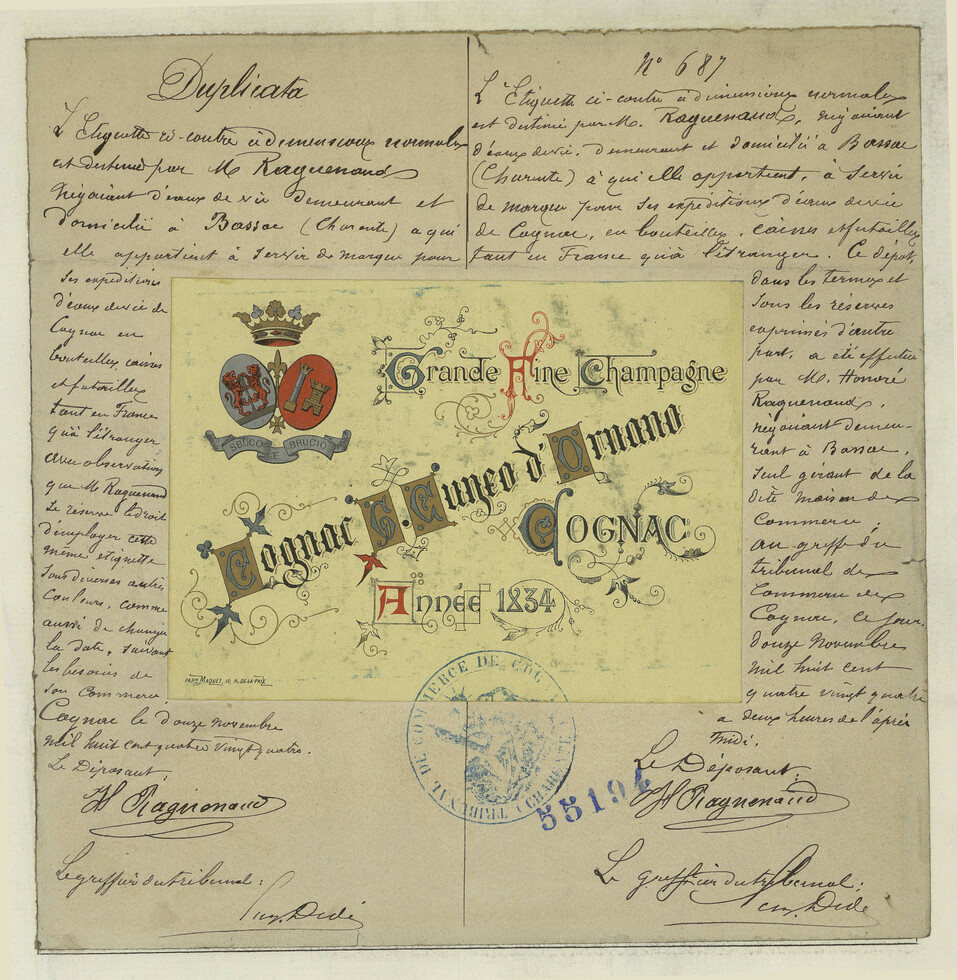 Duplicata
L'Etiquette ci-contre à dimensions normales
est destinée par M. Raguenaud
Négociant d'eaux de vie demeurant et
domicilié à Bassac (Charente) a qui
elle appartient à servir de marque pour
ses expéditions
d'eaux de vie de
Cognac en
bouteilles, caisses
et futailles
tant en France
qu'à l'étranger
avec observation
que M. Raguenaud
se réserve le droit
d'employer cette
même étiquette
sous diverses autres
couleurs, comme
aussi de changer
la date, suivant
les besoins de
son commerce
Cognac le douze novembre
mil huit cent quatre vingt quatre.
Le Déposant,
H Raguenaud
Le greffier du tribunal:
Didé
N° 687
L'Etiquette ci-contre à dimensions normales
est destinée par M. Raguenaud, négociant
d'eaux de vie, demeurant et domicilié à Bassac
(Charente) à qui elle appartient, à servir
de marque pour ses expéditions d'eaux de vie
de Cognac, en bouteilles, caisses et futailles
tant en France qu'à l'étranger. Ce dépôt,
dans les termes et
sous les réserves
exprimés d'autre
part, a été effectué
par M. Honoré
Raguenaud,
négociant demeu-
rant à Bassac,
seul gérant de la
dite maison de
Commerce,
au greffe du
tribunal de
Commerce de
Cognac, ce jour,
douze Novembre
mil huit cent
quatre vingt quatre
a deux heures de l'après
midi.
Le Déposant,
H Raguenaud
Le greffier du tribunal:
Didé
SBUCO E BRUCIO
Grande Fine Champagne
Cognac G. Cuneo d'Ornano
COGNAC
Année 1834
PARIS MAQUET, 10, R. DE LA PAIX
TRIBUNAL DE COMMERCE DE COGNAC (CHARENTE)
55194